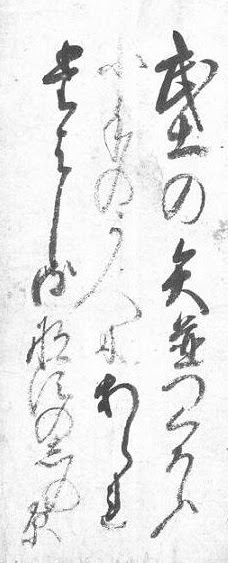 武士の矢並つくろふ
小手のうへにあられ
たはしる那須のしの原